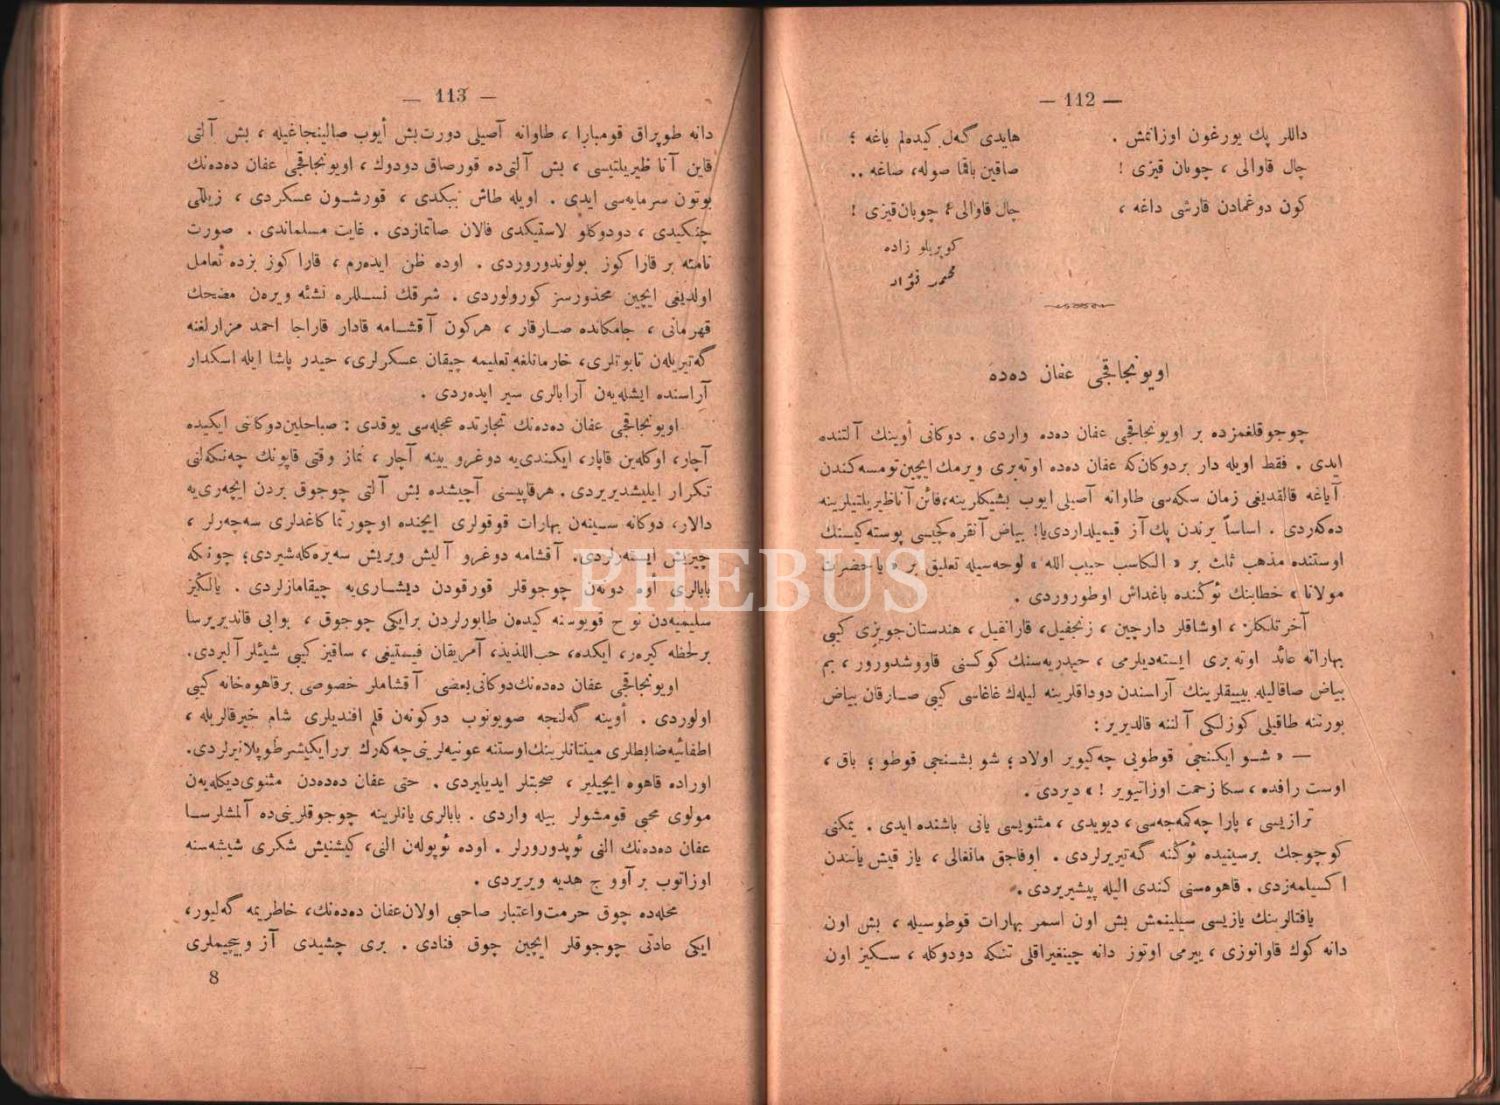 — 112 —
داللر پك يورغون اوزانمش .
چال قاوالى ، چوبان قيزى !
كون دوغمادن قارشى داغه ،
هايدى گەل كيدەلم باغه ؛
صاقين باقما صوله، صاغه ..
چال قاوالى چوبان قيزى !
كوپريلو زاده
محمد نژاد
اويونجاقجى عفان دەده
چوجوقلغمزده بر اويونجاقجى عفان دەده واردى . دوكانى أوينك آلتنده
ايدى . فقط اويله دار بر دوكان كه عفان دەده اوتەبرى ويرمك ايچين تومسه كندن
آياغه قالقديغى زمان سكەسى طاوانه آصيلى ايوب بشيكلرينه، قائن آنا ظيريلتيلرينه
دەكەردى . اساساً يرندن پك آز قيميلداردى يا! بياض آنقره كچيسى پوسته كيسنك
اوستنده مذهب ثلث بر « الكاسب حبيب الله » لوحه‌سيله تعليق بر « يا حضرت
مولانا » خطابنك ئوكنده باغداش اوطوروردى .
آختارلكلر، اوشاقلر دارچين ، زنجفيل، قارانفيل ، هندستان‌جويزى كبى
بهاراته عائد اوتە برى ايسته‌ديلرمى ، حيدريه‌سنك كوكسنى قاووشدورور ، بم
بياض صاقاليله بييقلرينك آراسندن دوداقلرينه ليلەك غاغاسى كبى صارقان بياض
بورتنه طاقيلى كوزلكى آلننه قالديرير :
— « شو ايكنجى قوطويى چەكيوير اولاد ؛ شو بشنجى قوطو ؛ باق ،
اوست رافده ، سكا زحمت اوزاتيوير ! » ديردى .
ترازيسى ، پارا چەكمەجەسى ، ديويدى ، مثنويسى يانى باشنده ايدى . يمكنى
كوچوجك برسينيده ئوكنه گەتيريرلردى . اوفاجق مانغالى ، ياز قيش ياننندن
اكسيلمەزدى . قاهوەسنى كندى اليله پيشيريردى .
يافتالرينك يازيسى سيلينمش بش اون اسمر بهارات قوطوسيله ، بش اون
دانه كوك قاوانوزى ، ييرمى اوتوز دانه چينغيراقلى تنكه دودوكله ، سكيز اون
— 113 —
دانه طوپراق قومبارا ، طاوانه آصيلى دورت بش أيوب صالينجاغيله ، بش آلتى
قاين آنا ظيريلتيسى ، بش آلتى ده قورصاق دودوك ، اويونجاقجى عفان دەدەنك
بوتون سرمايەسى ايدى . اويله طاش ببكدى ، قورشون عسكردى ، زيللى
چنكيدى ، دودوكلو لاستيكدى فالان صاتمازدى . غايت مسلماندى . صورت
نامنه بر قارا كوز بولوندوروردى . اوده ظن ايدەرم ، قارا كوز بزده تعامل
اولديغى ايچين محذورسز كورولوردى . شرقك نسللره نشئه ويرەن مضحك
قهرمانى ، جامكانده صارقار ، هركون آقشامه قادار قاراجا احمد مزارلغنه
گەتيريلەن تابوتلرى، خارمانلغه تعليمه چيقان عسكرلرى، حيدر پاشا ايله اسكدار
آراسنده ايشله‌يەن آرابالرى سير ايدەردى .
اويونجاقجى عفان دەدەنك تجارتده عجله‌سى يوقدى : صباحلين دوكانى ايكيده
آچار، اوكله‌ين قاپار، ايكندى‌يه دوغرو يينه آچار ، نماز وقتى قاپونك چەنكه‌لنى
تكرار ايليشديريردى . هر قاپيسنى آچيشده بش آلتى چوجوق بردن ايچەرى‌يه
دالار، دوكانه سينەن بهارات قوقولرى ايچنده اوچورتما كاغدلرى سەچەرلر ،
چيريش ايستەرلردى . آقشامه دوغرو آليش ويريش سەيره‌كله‌شيردى ؛ چونكه
بابالرى أوه دونەن چوجوقلر قورقودن ديشارى‌يه چيقامازلردى . يالكز
سليميەدن نوح قويوسنه كيدەن طابورلردن بر ايكى چوجوق ، بوابى قانديريرسا
بر لحظه كيرەر، ايكده، حب‌اللذيذ، آمريقان فيستيغى ، ساقيز كبى شيئلر آليردى.
اويونجاقجى عفان دەدەنك دوكانى بعضى آقشاملر خصوصى بر قاهوه‌خانه كبى
اولوردى . أوينه گەلنجه صويونوب دوكونەن قلم افنديلرى شام خيرقالريله ،
اطفائيه ضابطلرى مينتانلرينك اوستنه عونيه‌لرينى چەكەرك برر ايكيشر طوپلانيرلردى.
اوراده قاهوه ايچيلير ، صحبتلر ايديليردى . حتى عفان دەدەدن مثنوى ديكله‌يەن
مولوى محبى قومشولر بيله واردى . بابالرى يانلرينه چوجوقلرينى‌ده آلمشلرسا
عفان دەدەنك النى ئوپدورورلر . اوده ئوپولەن النى، كيشنيش شكرى شيشەسنه
اوزاتوب بر آووج هديه ويريردى .
محله‌ده چوق حرمت واعتبار صاحبى اولان عفان دەدەنك، خاطريمه گەليور،
ايكى عادتى چوجوقلر ايچين چوق فنادى . برى چشيدى آز وبيچيملرى
8
PHEBUS